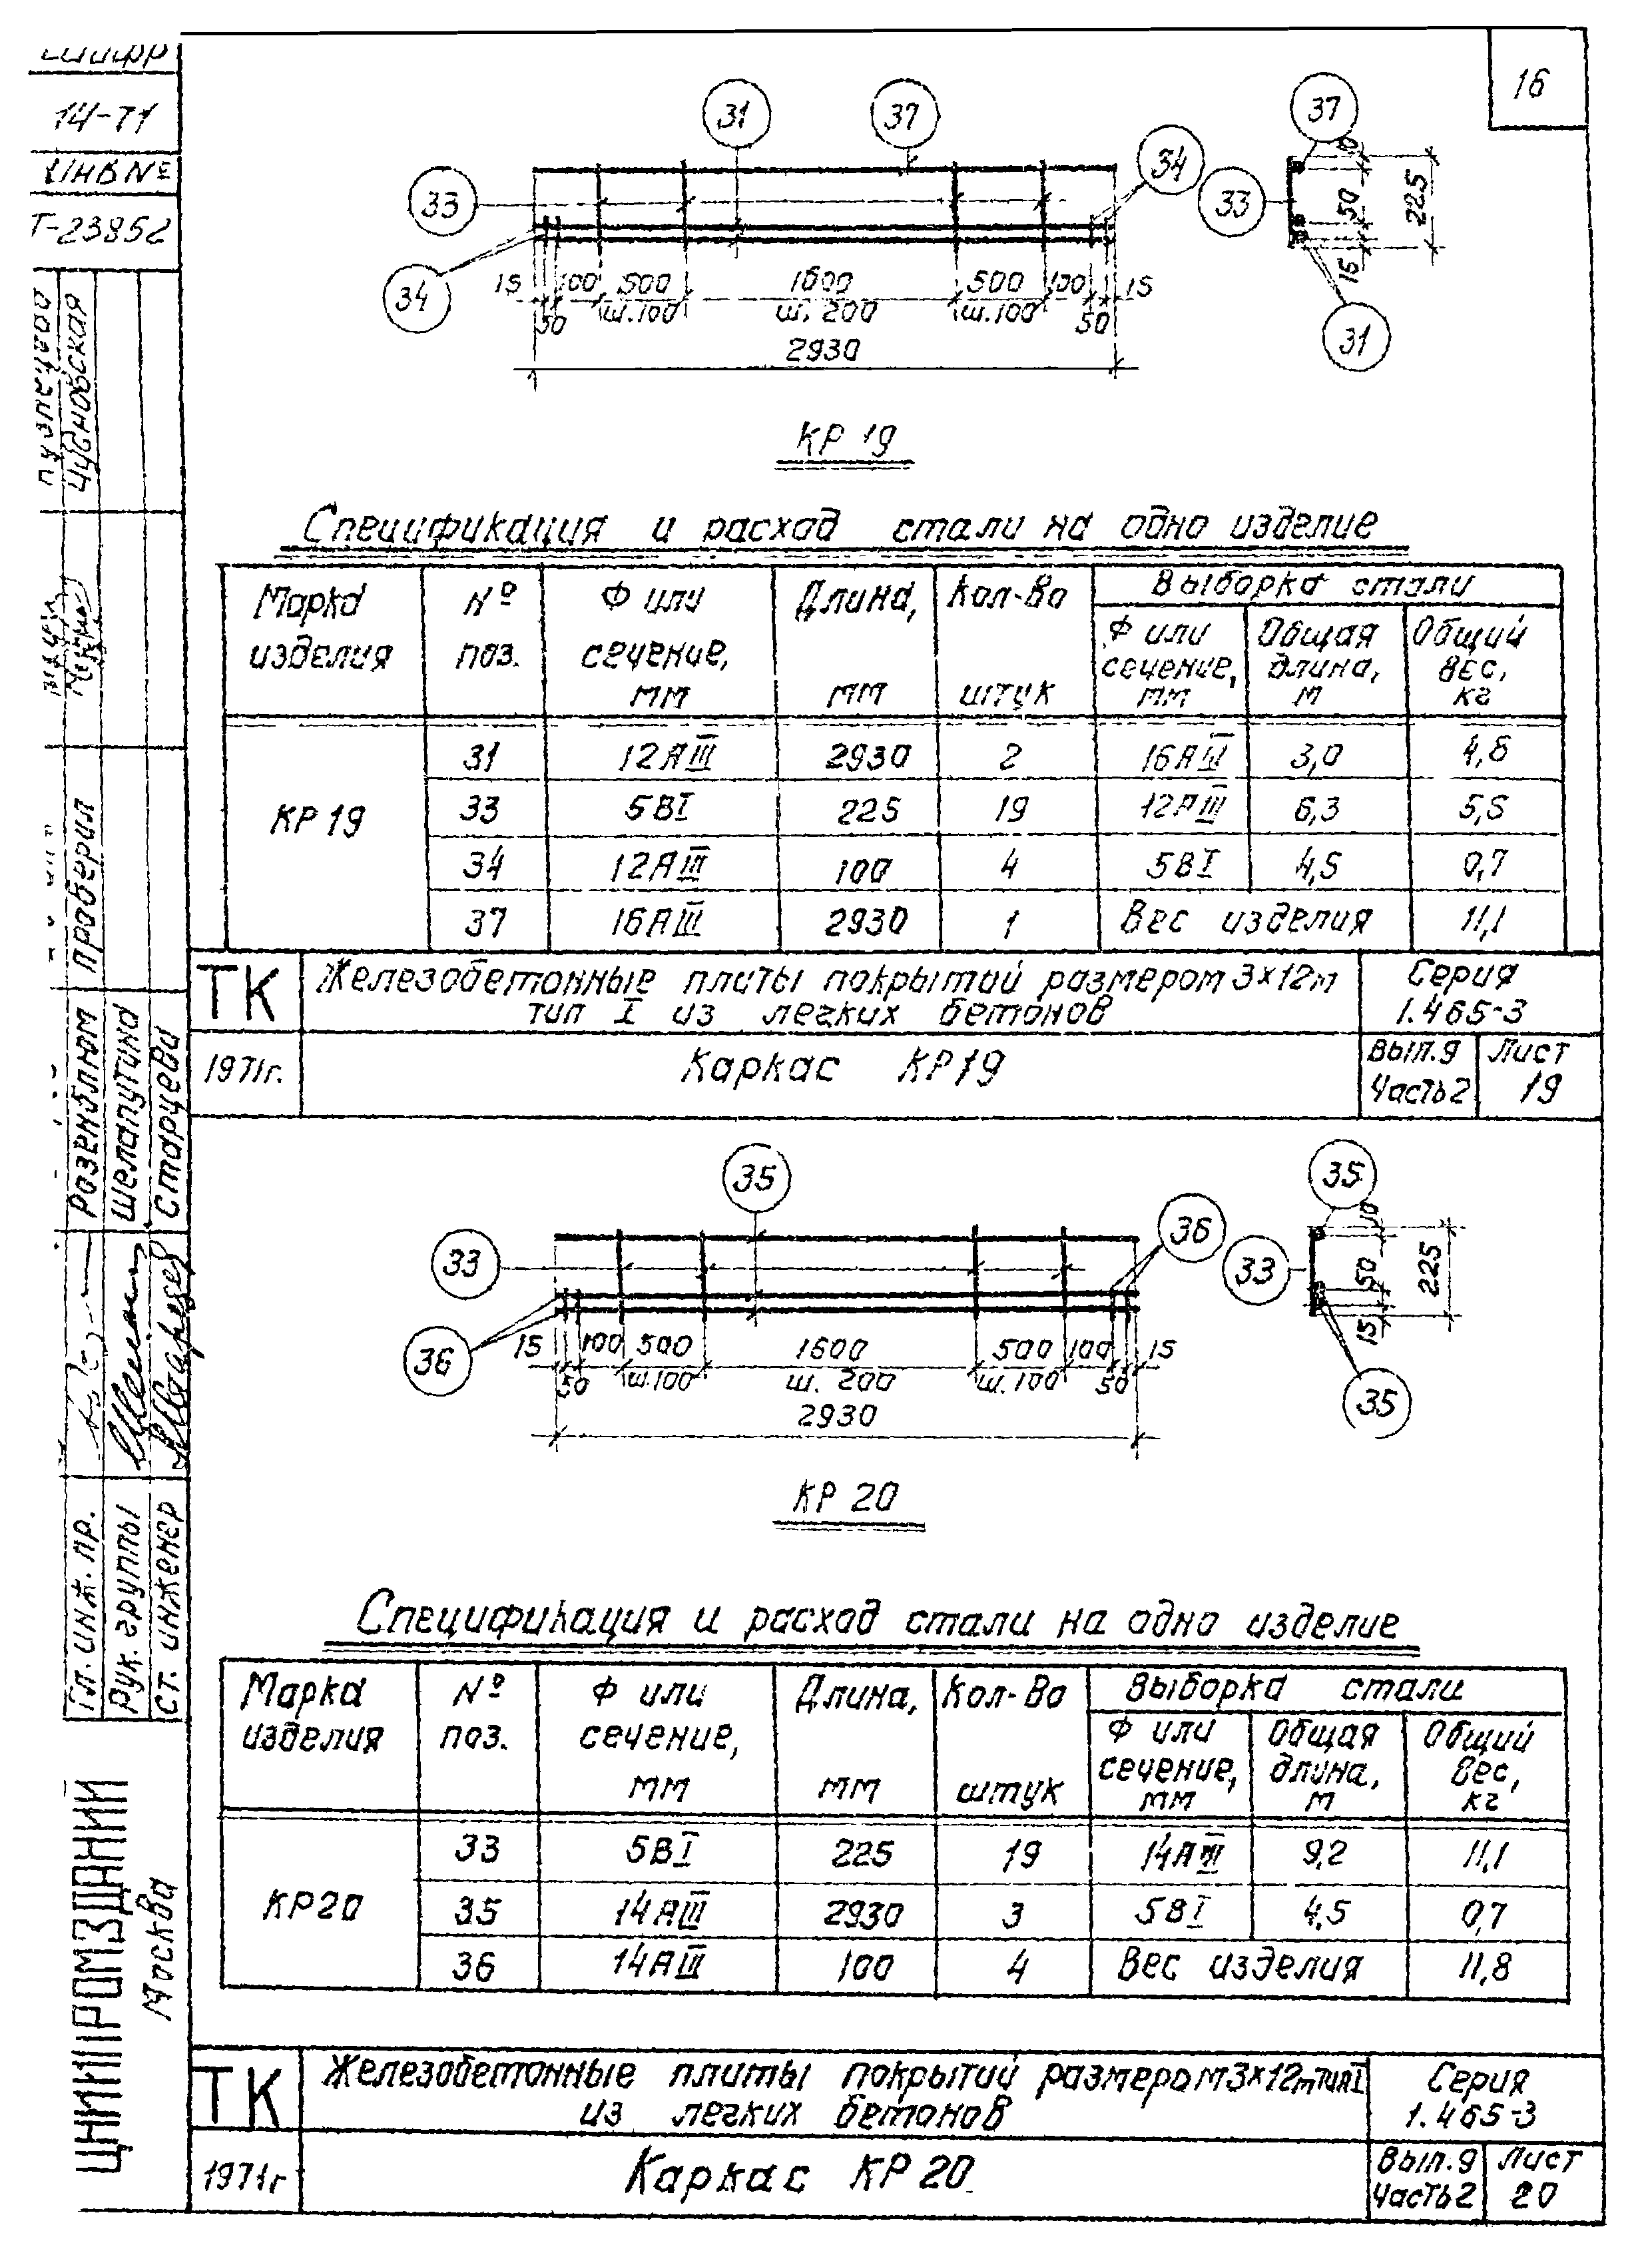 14-71
ИНВ №
Т-23852
Чудновская
проверил
Розенблюм
Шелапутина
Старцева
Гл. инж. пр.
Рук. группы
Ст. инженер
ЦНИИПРОМЗДАНИЙ
Москва
16
31 37 34 37
33 33
34 31
10 50 15 225
15 100 500 1600 500 100 15
50 ш.100 ш. 200 ш.100 50
2930
КР 19
Спецификация и расход стали на одно изделие
Марка изделия № поз. Ф или сечение, мм Длина, мм Кол-во штук Выборка стали
Ф или сечение, мм Общая длина, м Общий вес, кг
31 12АIII 2930 2 16АIII 3,0 4,8
КР 19 33 5ВI 225 19 12АIII 6,3 5,6
34 12АIII 100 4 5ВI 4,5 0,7
37 16АIII 2930 1 Вес изделия 11,1
ТК Железобетонные плиты покрытий размером 3×12м Серия
тип I из легких бетонов 1.465-3
1971г. Каркас КР19 Вып.9 Лист
Часть 2 19
35 36 35
33 33
36 35
10 50 15 225
15 100 500 1600 500 100 15
50 ш.100 ш. 200 ш.100 50
2930
КР 20
Спецификация и расход стали на одно изделие
Марка изделия № поз. Ф или сечение, мм Длина, мм Кол-во штук Выборка стали
Ф или сечение, мм Общая длина, м Общий вес, кг
33 5ВI 225 19 14АIII 9,2 11,1
КР20 35 14АIII 2930 3 5ВI 4,5 0,7
36 14АIII 100 4 Вес изделия 11,8
ТК Железобетонные плиты покрытий размером 3×12м тип I Серия
из легких бетонов 1.465-3
1971г Каркас КР 20 Вып.9 Лист
Часть 2 20